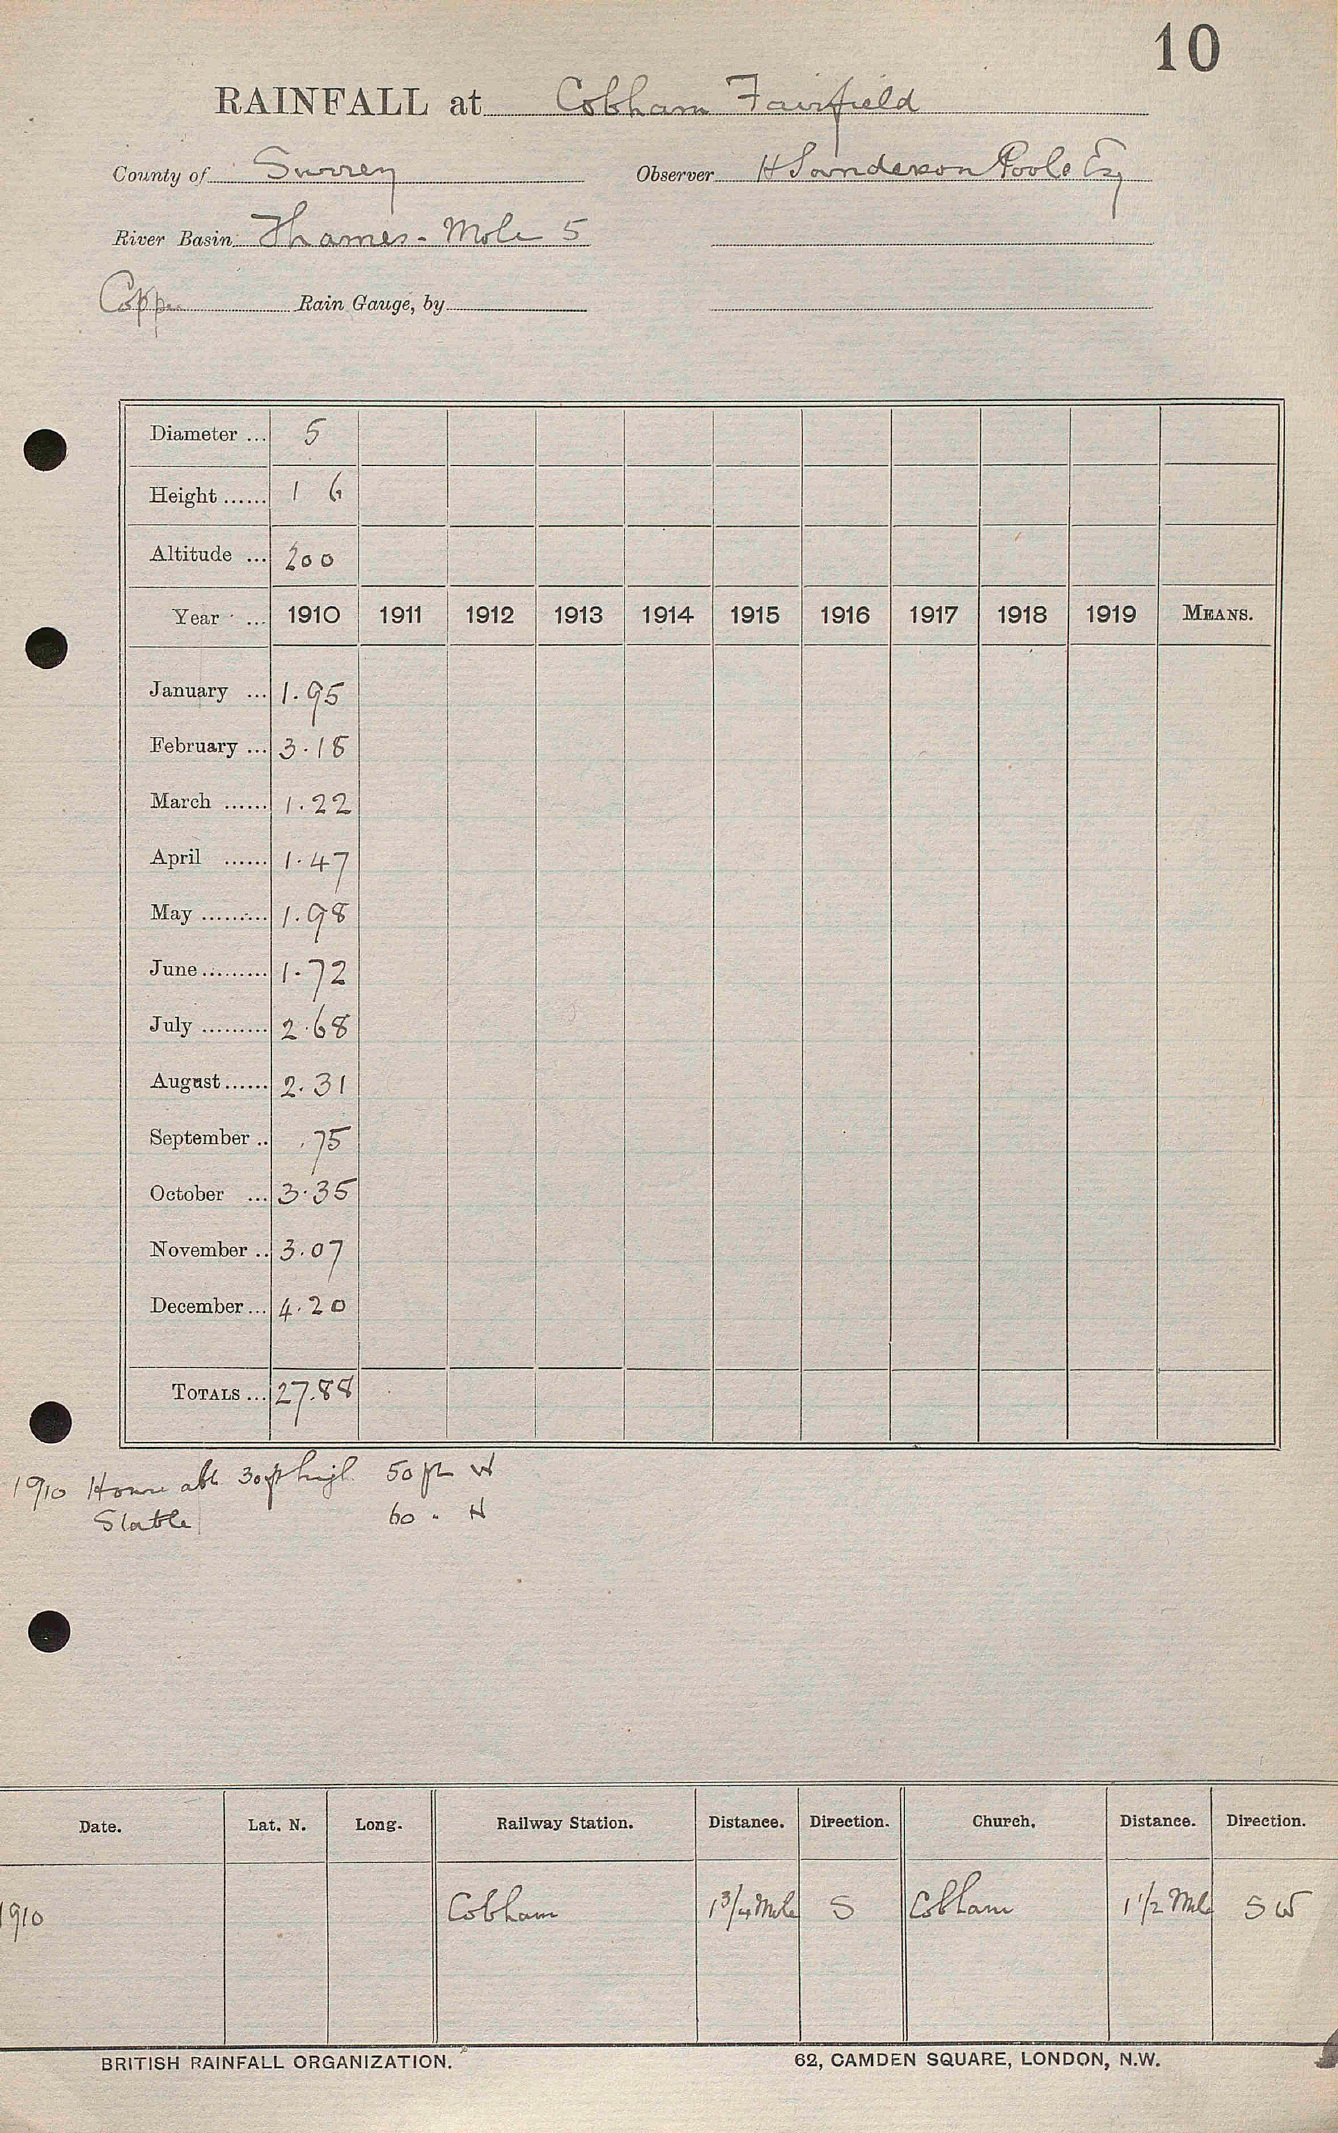 10
RAINFALL at Cobham Fairfield
County of Surrey Observer H Sanderson Poole Esq
River Basin Thames - Mole 5
Copper Rain Gauge, by
Diameter ... 5
Height ...... 1 6
Altitude ... 200
Year ... 1910 1911 1912 1913 1914 1915 1916 1917 1918 1919 MEANS.
January ... 1.95
February ... 3.18
March ...... 1.22
April ...... 1.47
May ......... 1.98
June ......... 1.72
July ......... 2.68
August ...... 2.31
September .. .75
October ... 3.35
November .. 3.07
December ... 4.20
TOTALS ... 27.88
1910 House abt 30 ft high 50 ft W
Stable 60 " N
Date. Lat. N. Long. Railway Station. Distance. Direction. Church. Distance. Direction.
1910 Cobham 1 3/4 Mile S Cobham 1 1/2 Mile SW
BRITISH RAINFALL ORGANIZATION. 62, CAMDEN SQUARE, LONDON, N.W.